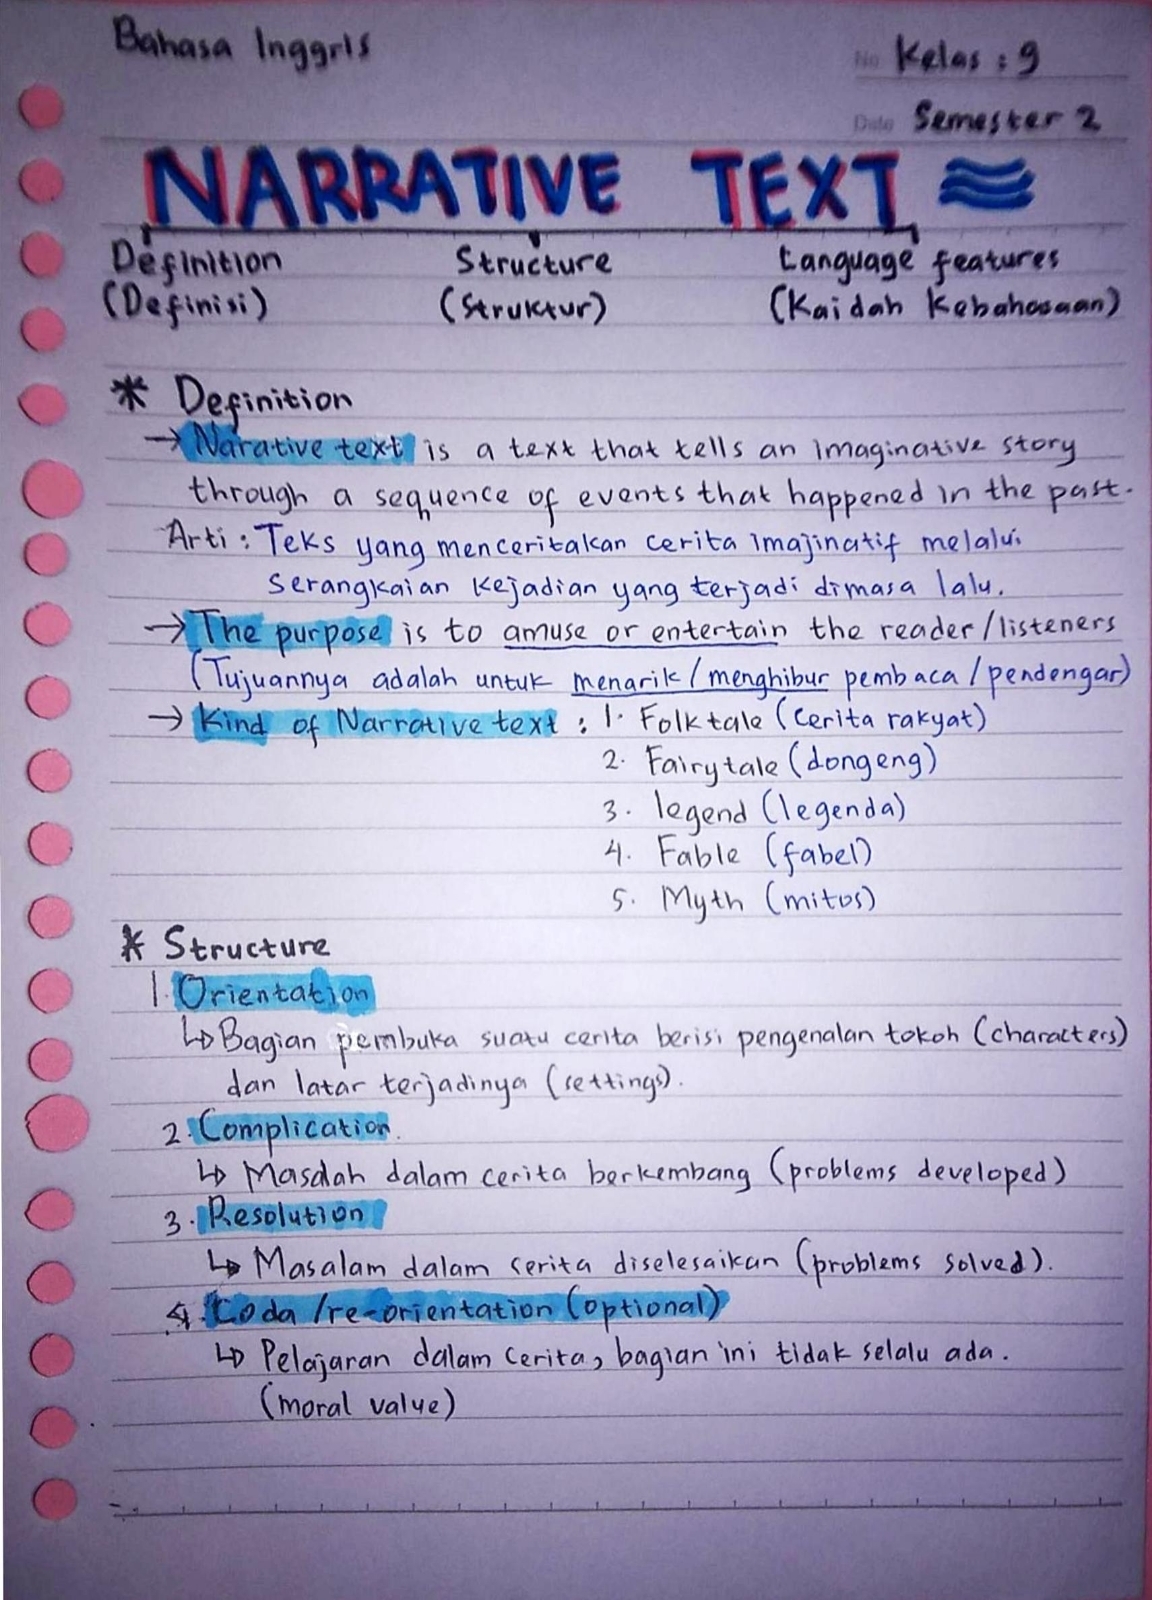 Bahasa Inggris
No Kelas : 9
Date Semester 2
NARRATIVE TEXT
Definition Structure Language features
(Definisi) (Struktur) (Kaidah Kebahasaan)
* Definition
→ Narative text is a text that tells an imaginative story
through a sequence of events that happened in the past.
Arti : Teks yang menceritakan cerita imajinatif melalui
serangkaian kejadian yang terjadi dimasa lalu.
→ The purpose is to amuse or entertain the reader/listeners
(Tujuannya adalah untuk menarik/menghibur pembaca/pendengar)
→ Kind of Narrative text : 1. Folktale (cerita rakyat)
2. Fairytale (dongeng)
3. legend (legenda)
4. Fable (fabel)
5. Myth (mitos)
* Structure
1. Orientation
↳ Bagian pembuka suatu cerita berisi pengenalan tokoh (characters)
dan latar terjadinya (settings).
2. Complication.
↳ Masalah dalam cerita berkembang (problems developed)
3. Resolution
↳ Masalam dalam cerita diselesaikan (problems solved).
4. Coda /re-orientation (optional)
↳ Pelajaran dalam cerita, bagian ini tidak selalu ada.
(moral value)